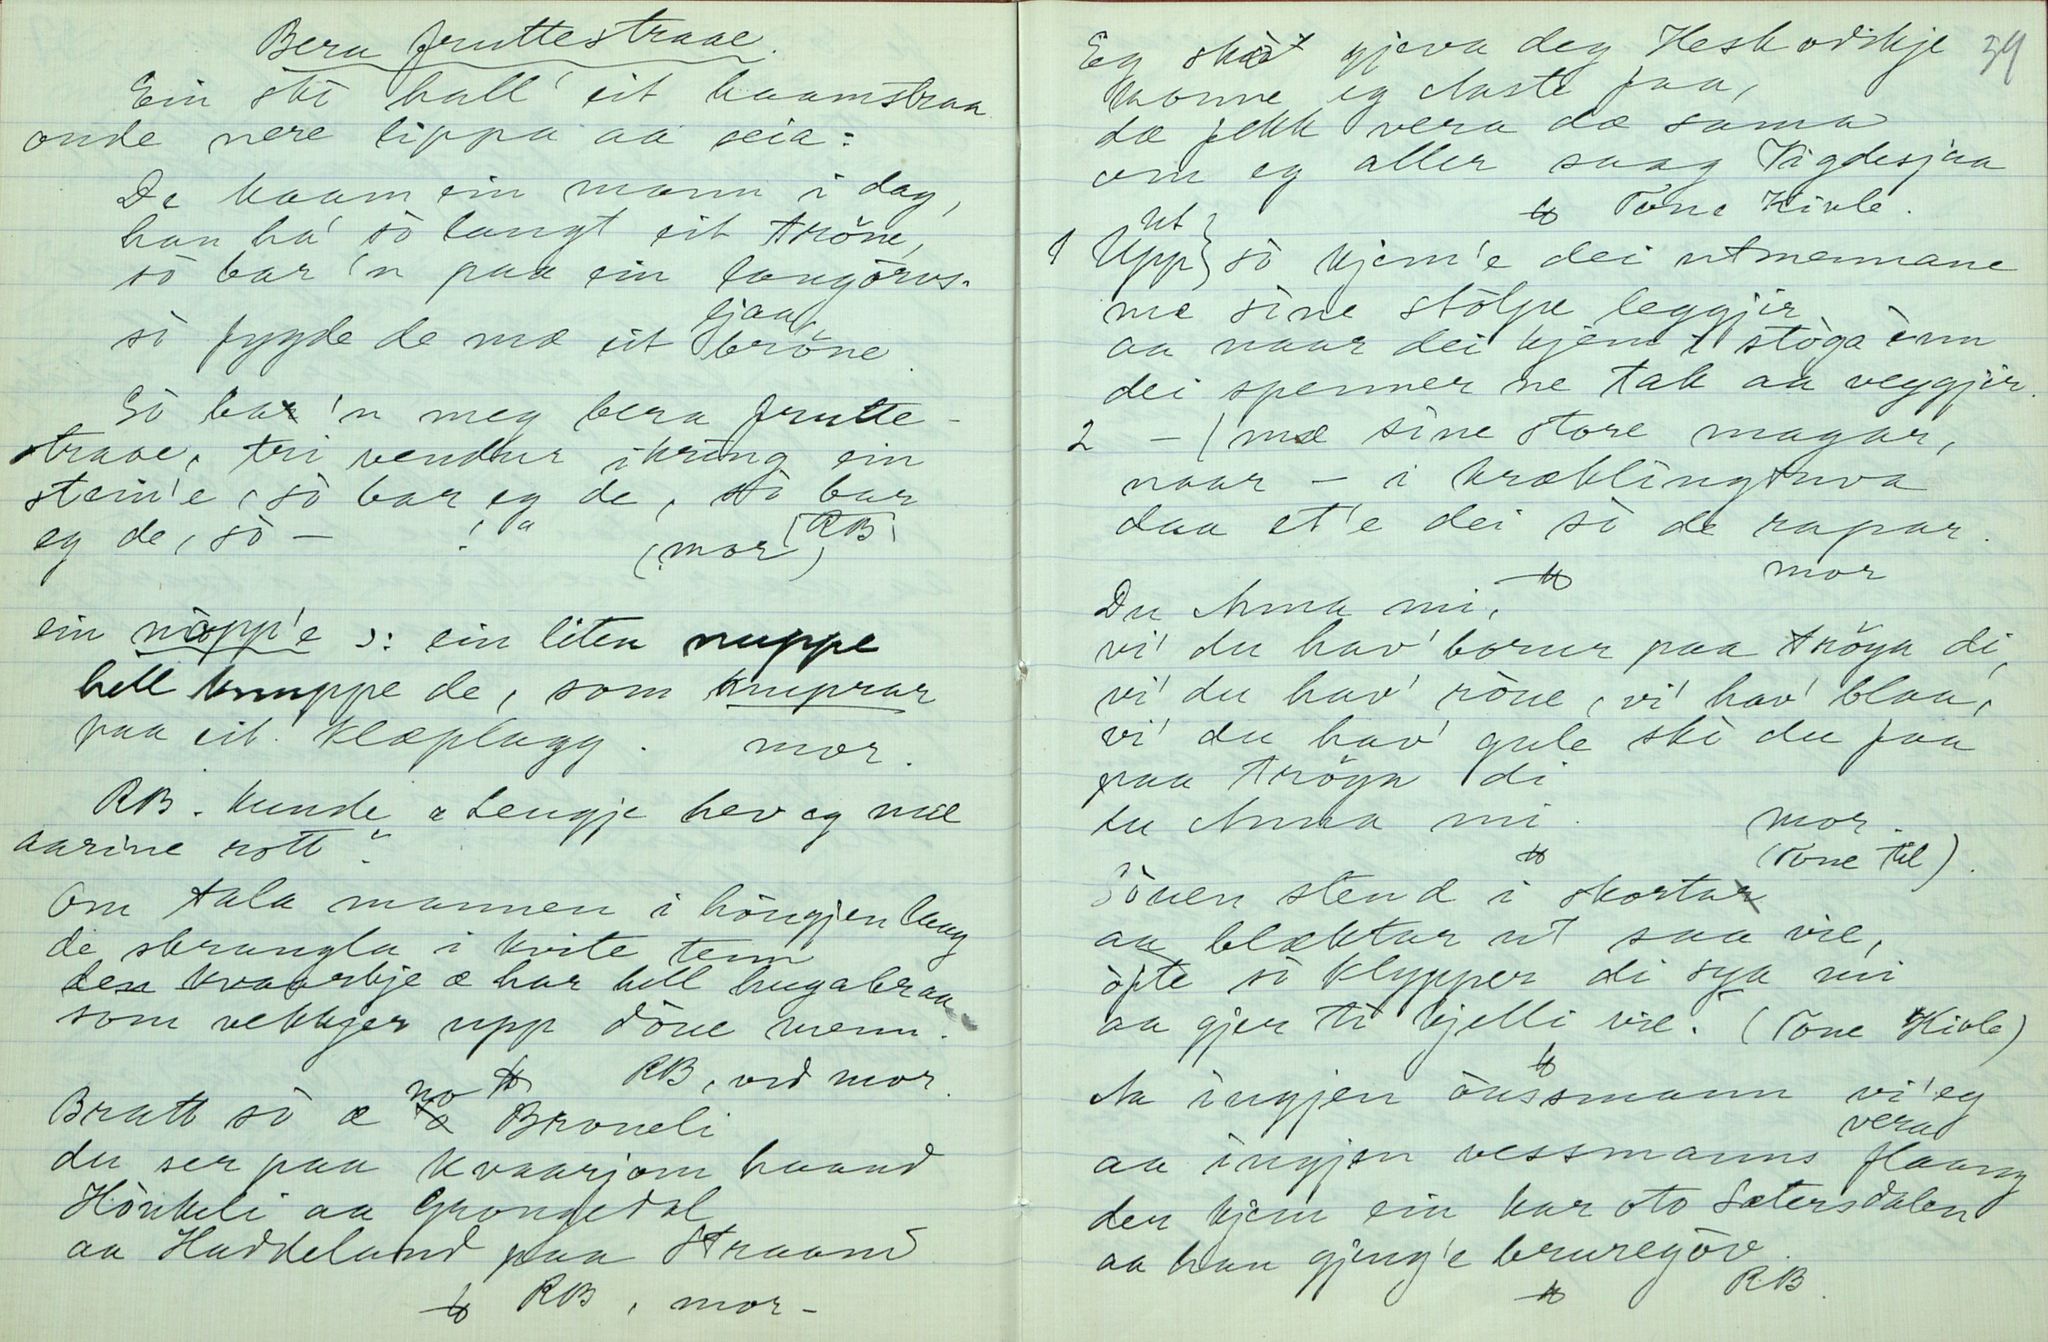 Bera fruttestraae.
Ein ski hall' eit haamstraa
onde nere lippa aa seia:
De kaam ein mann i dag,
han ha' so langt eit tröne,
so bar 'n paa ein langörvs-
ljaa,
so fygde de mæ eit bröne.
So bar 'n meg bera frutte-
straae, tri vendur ikring ein
stein'e, so bar eg de, so bar
eg de, so – !"
(mor) RB
ein nöpp'e ɔ: ein liten nuppe
hell knuppe de, som knuprar
paa eit klæplagg. mor.
RB. kunde "Lengje hev eg mæ
aarine rott".
Om tala mannen i höngjen laag
de skrangla i kvite tenn
den kvaarkje æ har hell hugabraa
som vekkjer upp döue menn.
RB, ved mor.
Bratt so æ no Broneli
du ser paa kvaarjom haand
Hönkeli aa Grongedal
aa Haddeland paa Straand
RB, mor –
39
Eg skat gjeva deg Heskodskje
konne eg faste paa,
dæ fekk vera dæ sama
om eg aller saag Vigdesjaa
Tone Kivle.
Ut
1 Upp} so kjem'e dei utmennane
mæ sine stölpe leggjir
aa naar dei kjem i stoga inn
dei spenner ne tak aa veggjir.
2 – (mæ sine store magar,
naar – i kræklingtuva
daa et'e dei so de rapar.
mor
Du Anna mi,
vi' du hav' borur paa tröya di,
vi' du hav' röue, vi' hav' blaa,
vi' du hav' gule ski du faa
paa tröya di
du Anna mi. mor.
(Tone til).
Söuen stend i skorta
aa blæktar ut saa vie,
öfte so klypper di sya mi
aa gjer ti kjelli vie. (Tone Kivle)
Aa ingjen öussmann vi' eg
vera
aa ingjen vessmanns flaang
der kjem ein kar oto Sætersdalen
aa han gjeng'e bruregöv.
RB.